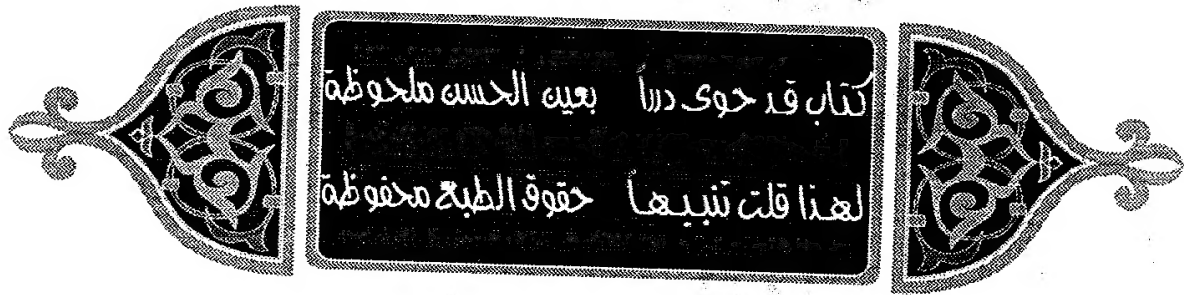 كتاب قد حوى درراً بعين الحسن ملحوظة
لهذا قلت تنبيهاً حقوق الطبع محفوظة